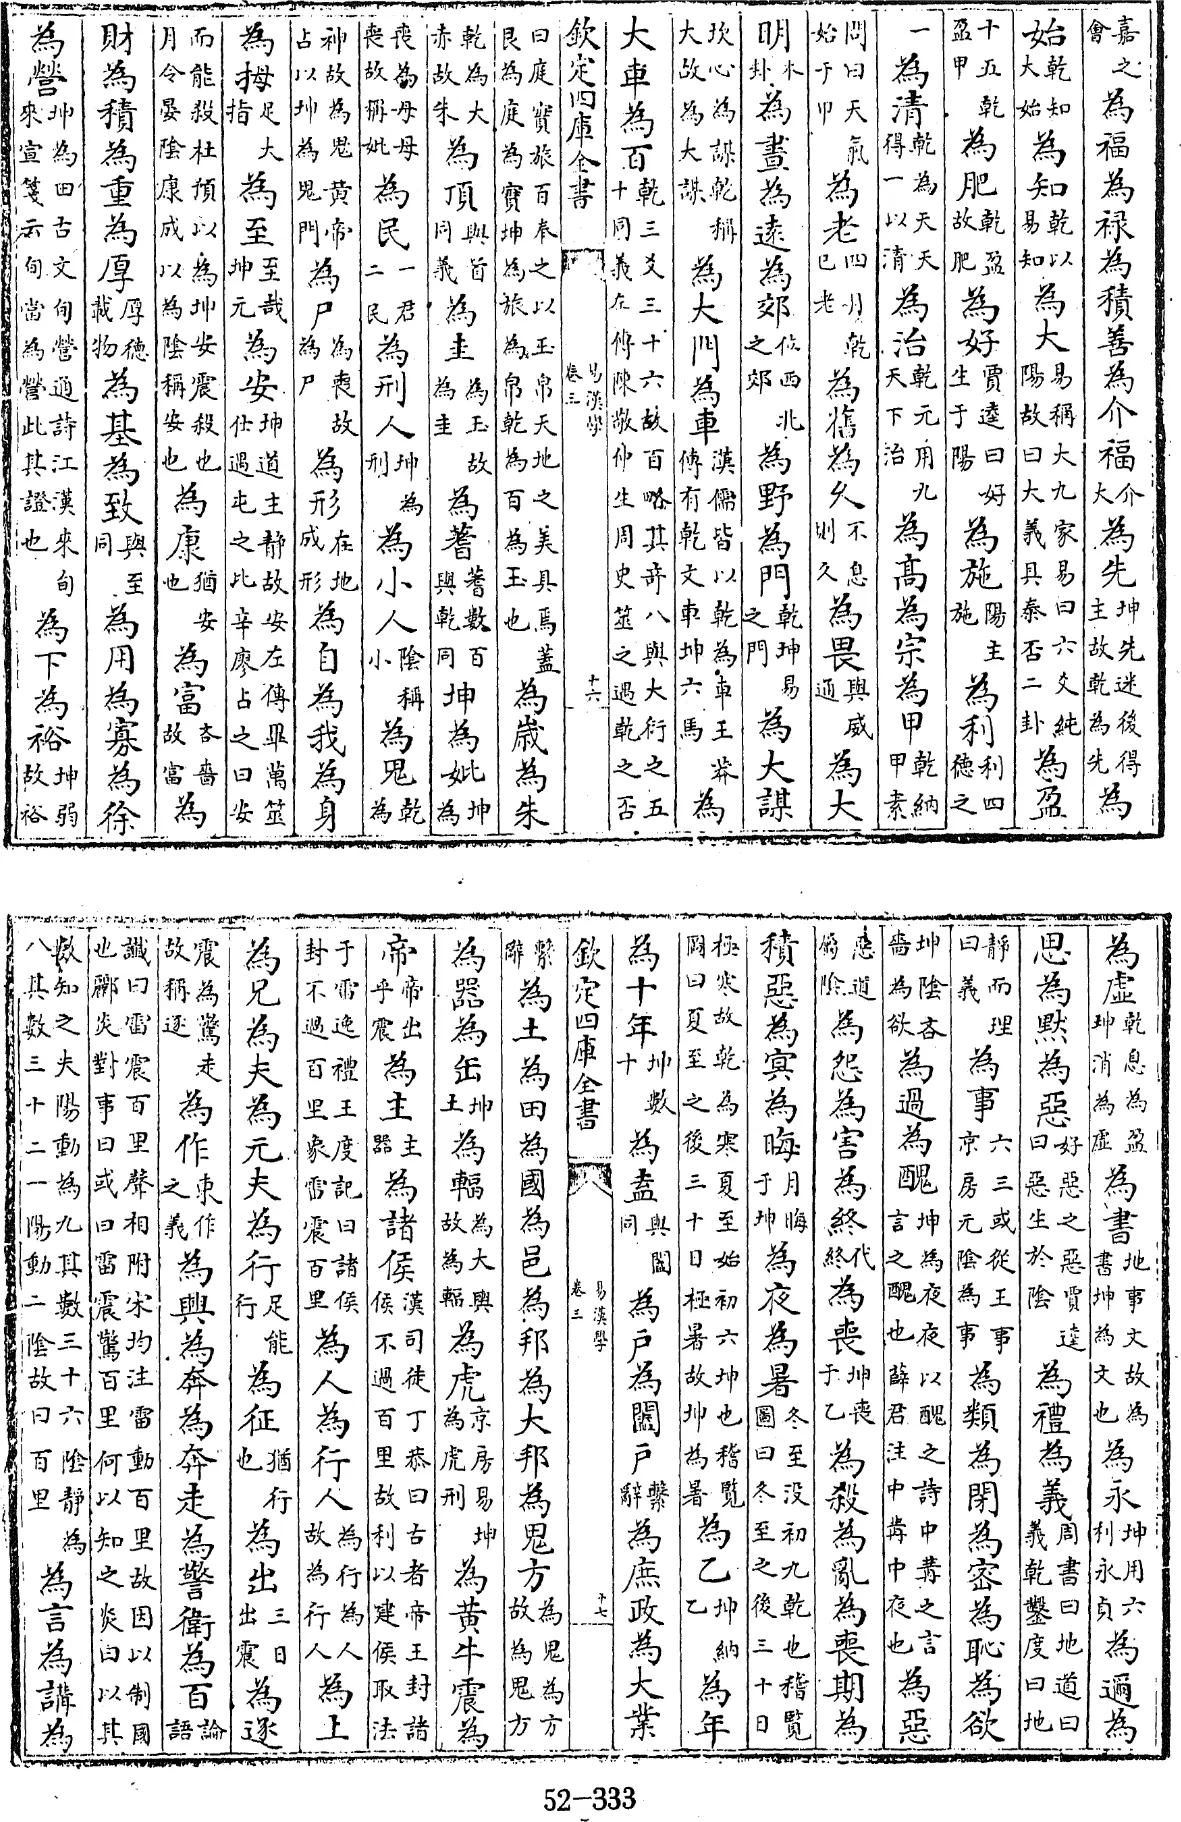 嘉之會為福為禄為積善為介福介大為先坤先迷後得主故乾為先為
始乾知大始為知乾以易知為大易稱大九家易曰六爻純陽故曰大義具泰否二卦為盈
十五乾盈甲為肥乾盈故肥為好賈逵曰好生于陽為施陽主施為利利四德之
一為清乾為天天得一以清為治乾元用九天下治為髙為宗為甲乾納甲甲素
問曰天氣始于甲為老四月乾巳老為舊為久不息則久為畏與威通為大
明本卦為晝為逺為郊位西北之郊為野為門乾坤易之門為大謀
坎心為謀乾稱大故為大謀為大門為車漢儒皆以乾為車王莽傳有乾文車坤六馬為
大車為百乾三爻三十六故百略其奇八與大衍之五十同義左傳陳敬仲生周史筮之遇乾之否
欽定四庫全書 易漢學 卷三 十六
曰庭實旅百奉之以玉帛天地之美具焉蓋艮為庭為實坤為旅為帛乾為百為玉也為歲為朱
乾為大赤故朱為頂與首同義為圭為玉故為圭為蓍蓍數百與乾同坤為妣坤為
喪為母母喪故稱妣為民一君二民為刑人坤為刑為小人陰稱小為鬼乾為
神故為鬼黄帝占以坤為鬼門為尸為喪故為尸為形在地成形為自為我為身
為拇足大指為至至哉坤元為安坤道主靜故安左傳畢萬筮仕遇屯之比辛廖占之曰安
而能殺杜預以為坤安震殺也月令晏陰康成以為陰稱安也為康猶安也為富吝嗇故富為
財為積為重為厚厚德載物為基為致與至同為用為寡為徐
為營坤為田古文旬營通詩江漢來旬來宣箋云旬當為營此其證也為下為裕坤弱故裕
為虚乾息為盈坤消為虚為書地事文故為書坤為文也為永坤用六利永貞為邇為
思為黙為惡好惡之惡賈逵曰惡生於陰為禮為義周書曰地道曰義乾鑿度曰地
靜而理曰義為事六三或從王事京房元陰為事為類為閉為密為恥為欲
坤陰吝嗇為欲為過為醜坤為夜夜以醜之詩中冓之言言之醜也薛君注中冓中夜也為惡
惡道屬陰為怨為害為終代終為喪坤喪于乙為殺為亂為喪期為
積惡為冥為晦月晦于坤為夜為暑冬至没初九乾也稽覽圖曰冬至之後三十日
極寒故乾為寒夏至始初六坤也稽覽圖曰夏至之後三十日極暑故坤為暑為乙坤納乙為年
為十年坤數十為盍與闔同為户為闔户繫辭為庶政為大業
欽定四庫全書 易漢學 卷三 十七
繫辭為土為田為國為邑為邦為大邦為鬼方為鬼為方故為鬼方
為器為缶坤土為輻為大輿故為輻為虎京房易坤為虎刑為黄牛震為
帝帝出乎震為主主器為諸侯漢司徒丁恭曰古者帝王封諸侯不過百里故利以建侯取法
于雷逸禮王度記曰諸侯封不過百里象雷震百里為人為行人為行為人故為行人為上
為兄為夫為元夫為行足能行為征猶行也為出三日出震為逐
震為驚走故稱逐為作東作之義為興為奔為奔走為警衛為百論語
讖曰雷震百里聲相附宋均注雷動百里故因以制國也酈炎對事曰或曰雷震驚百里何以知之炎曰以其
數知之夫陽動為九其數三十六陰靜為八其數三十二一陽動二陰故曰百里為言為講為
52-333